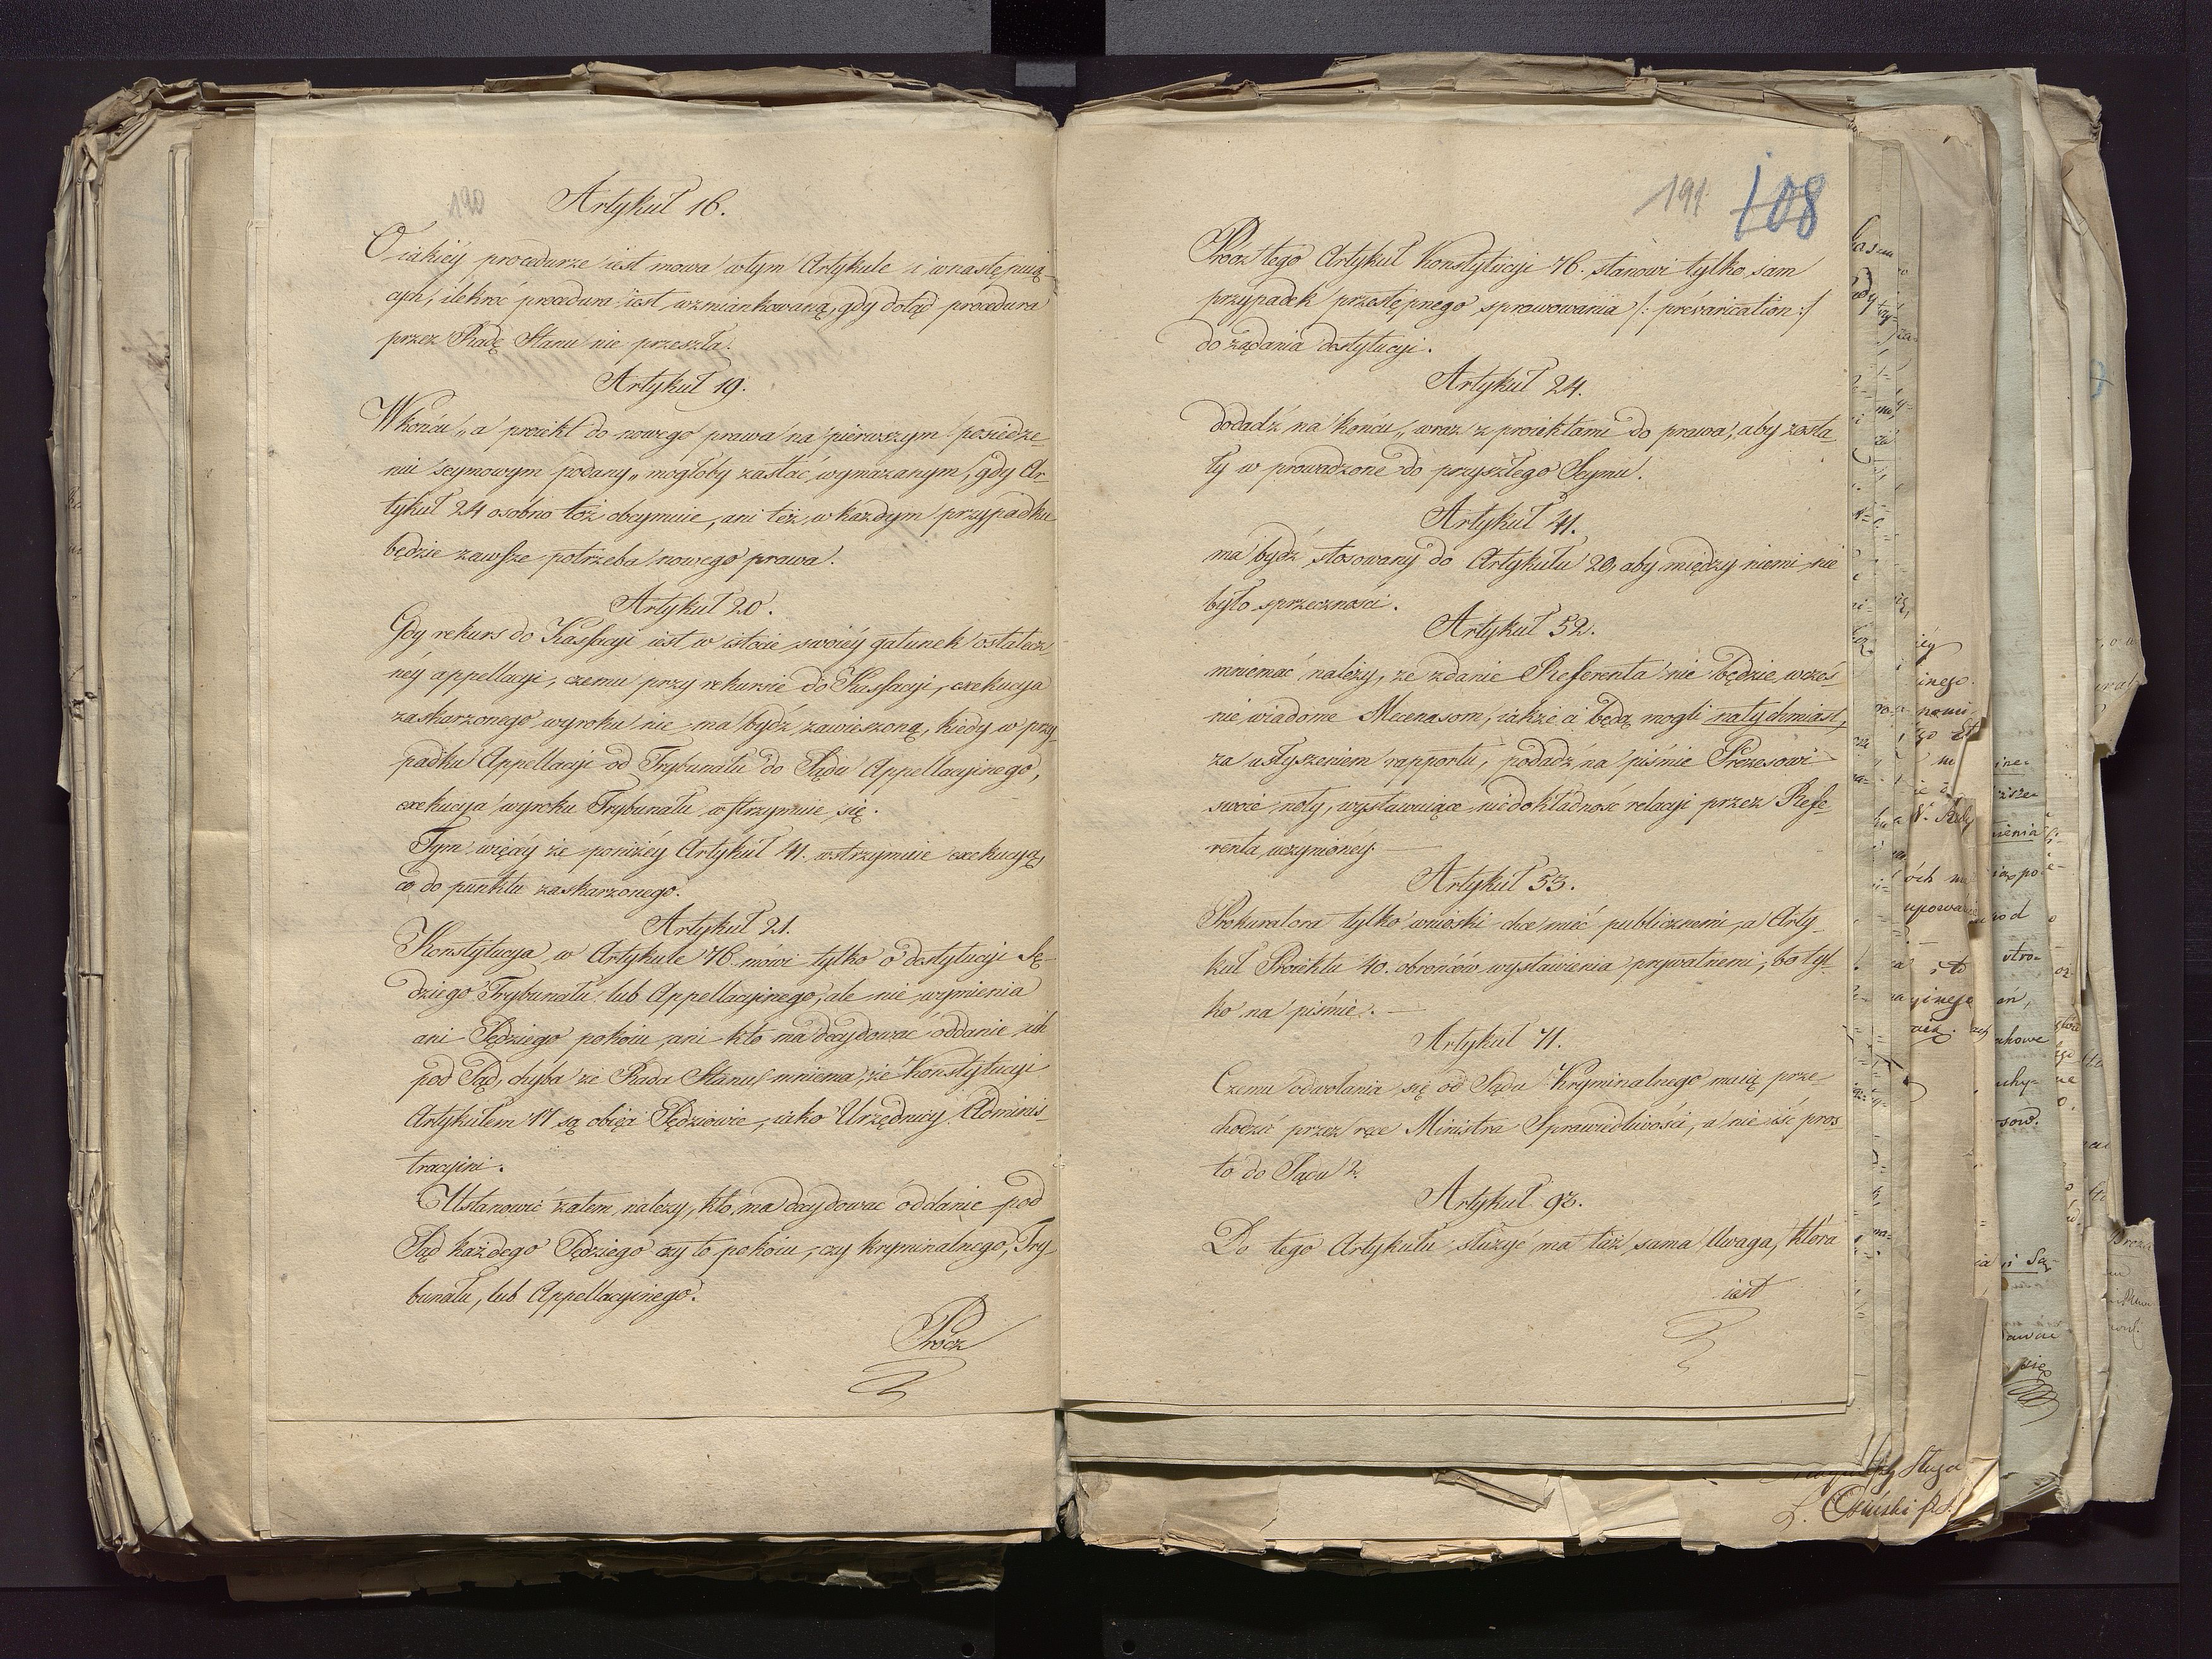 190
Artykuł 16.
O iakiéy procedurze iest mowa w tym Artykule i w następuią-
cych, ilekroć procedura iest wzmiankowaną, gdy dotąd procedura
przez Radę Stanu nie przeszła.
Artykuł 19.
W końcu „a proiekt do nowego prawa na pierwszym posiedze-
niu seymowym podany„ mogłoby zostać wymazanym, gdy Ar-
tykuł 24 osobno toż obeymuie, ani też w każdym przypadku
będzie zawsze potrzeba nowego prawa.
Artykuł 20.
Gdy rekurs do Kassacyi iest w istocie swoiéy gatunek ostatecz-
néy appellacyi, czemu przy rekursie do Kassacyi, exekucya
zaskarżonego wyroku nie ma bydź zawieszoną, kiedy w przy-
padku Appellacyi od Trybunału do Sądu Appellacyinego,
exekucya wyroku Trybunału wstrzymuie się.
Tym więcéy że poniżéy Artykuł 41. wstrzymuie exekucyą,
co do punktu zaskarzonego.
Artykuł 21.
Konstytucya w Artykule 76. mówi tylko o destytucyi Sę-
dziego Trybunału lub Appellacyinego, ale nie wymienia
ani Sędziego pokoiu, ani kto ma decydować oddanie ich
pod Sąd, chyba że Rada Stanu mniema, że Konstytucyi
Artykułem 17 są obięci Sędziowie, iako Urzędnicy Adminis-
tracyini.
Ustanowić zatem należy, kto ma decydować oddanie pod
Sąd każdego Sędziego czy to pokoiu, czy kryminalnego, Try-
bunału, lub Appellacyinego.
Prócz
191 108
Prócz tego Artykuł Konstytucyi 76. stanowi tylko sam
przypadek przestępnego sprawowania /: prévarication :/
do żądania destytucyi.
Artykuł 24.
dodadź na końcu „wraz z proiektami do prawa, aby zosta-
ły w prowadzone do przyszłego Seymu.
Artykuł 41.
ma bydź stosowany do Artykułu 20, aby między niemi nie
było sprzeczności.
Artykuł 52.
mniemać należy, że zdanie Referenta nie będzie wcześ-
nie wiadome Mecenasom, iakże ci będą mogli natychmiast,
za usłyszeniem rapportu, podadź na piśmie Prezesowi
swoie noty, wystawuiące niedokładność relacyi przez Refe-
renta uczynionéy.
Artykuł 53.
Prokuratora tylko wnioski chce mieć publicznemi, a Arty-
kuł Proiektu 40. obrońców wystawienia prywatnemi, bo tyl-
ko na piśmie.
Artykuł 71.
Czemu odwołania się od Sądu Kryminalnego maią prze-
chodzić przez ręce Ministra Sprawiedliwości, a nie iść pros-
to do Sądu?
Artykuł 93.
Do tego Artykułu służyć ma taż sama Uwaga, która
iest
Sługa
L. Osiński